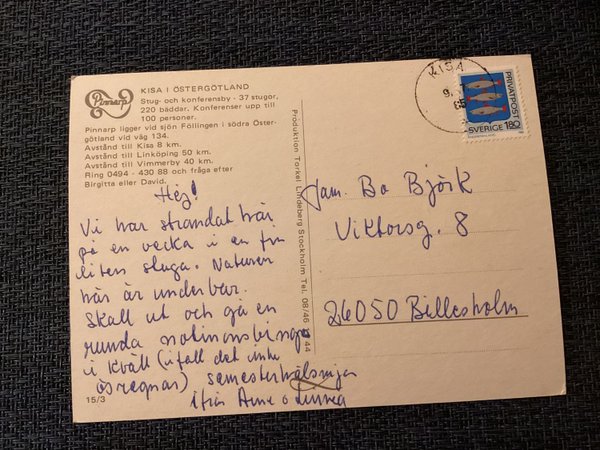 Pinnarp
KISA I ÖSTERGÖTLAND
Stug- och konferensby · 37 stugor,
220 bäddar. Konferenser upp till
100 personer.
Pinnarp ligger vid sjön Föllingen i södra Öster-
götland vid väg 134.
Avstånd till Kisa 8 km.
Avstånd till Linköping 50 km.
Avstånd till Vimmerby 40 km.
Ring 0494 - 430 88 och fråga efter
Birgitta eller David.
Hej!
Vi har strandat här
på en vecka i en fin
liten stuga. Naturen
här är underbar.
Skall ut och gå en
runda
i kväll (ifall det inte
ösregnar) semesterhälsningar
ifrån Arne o Linnea
15/3
Produktion Torkel Lindeberg Stockholm Tel. 08/46 44
KISA
PRIVATPOST
SVERIGE 180
Fam. Bo Björk
Viktorsg. 8
26050 Billesholm